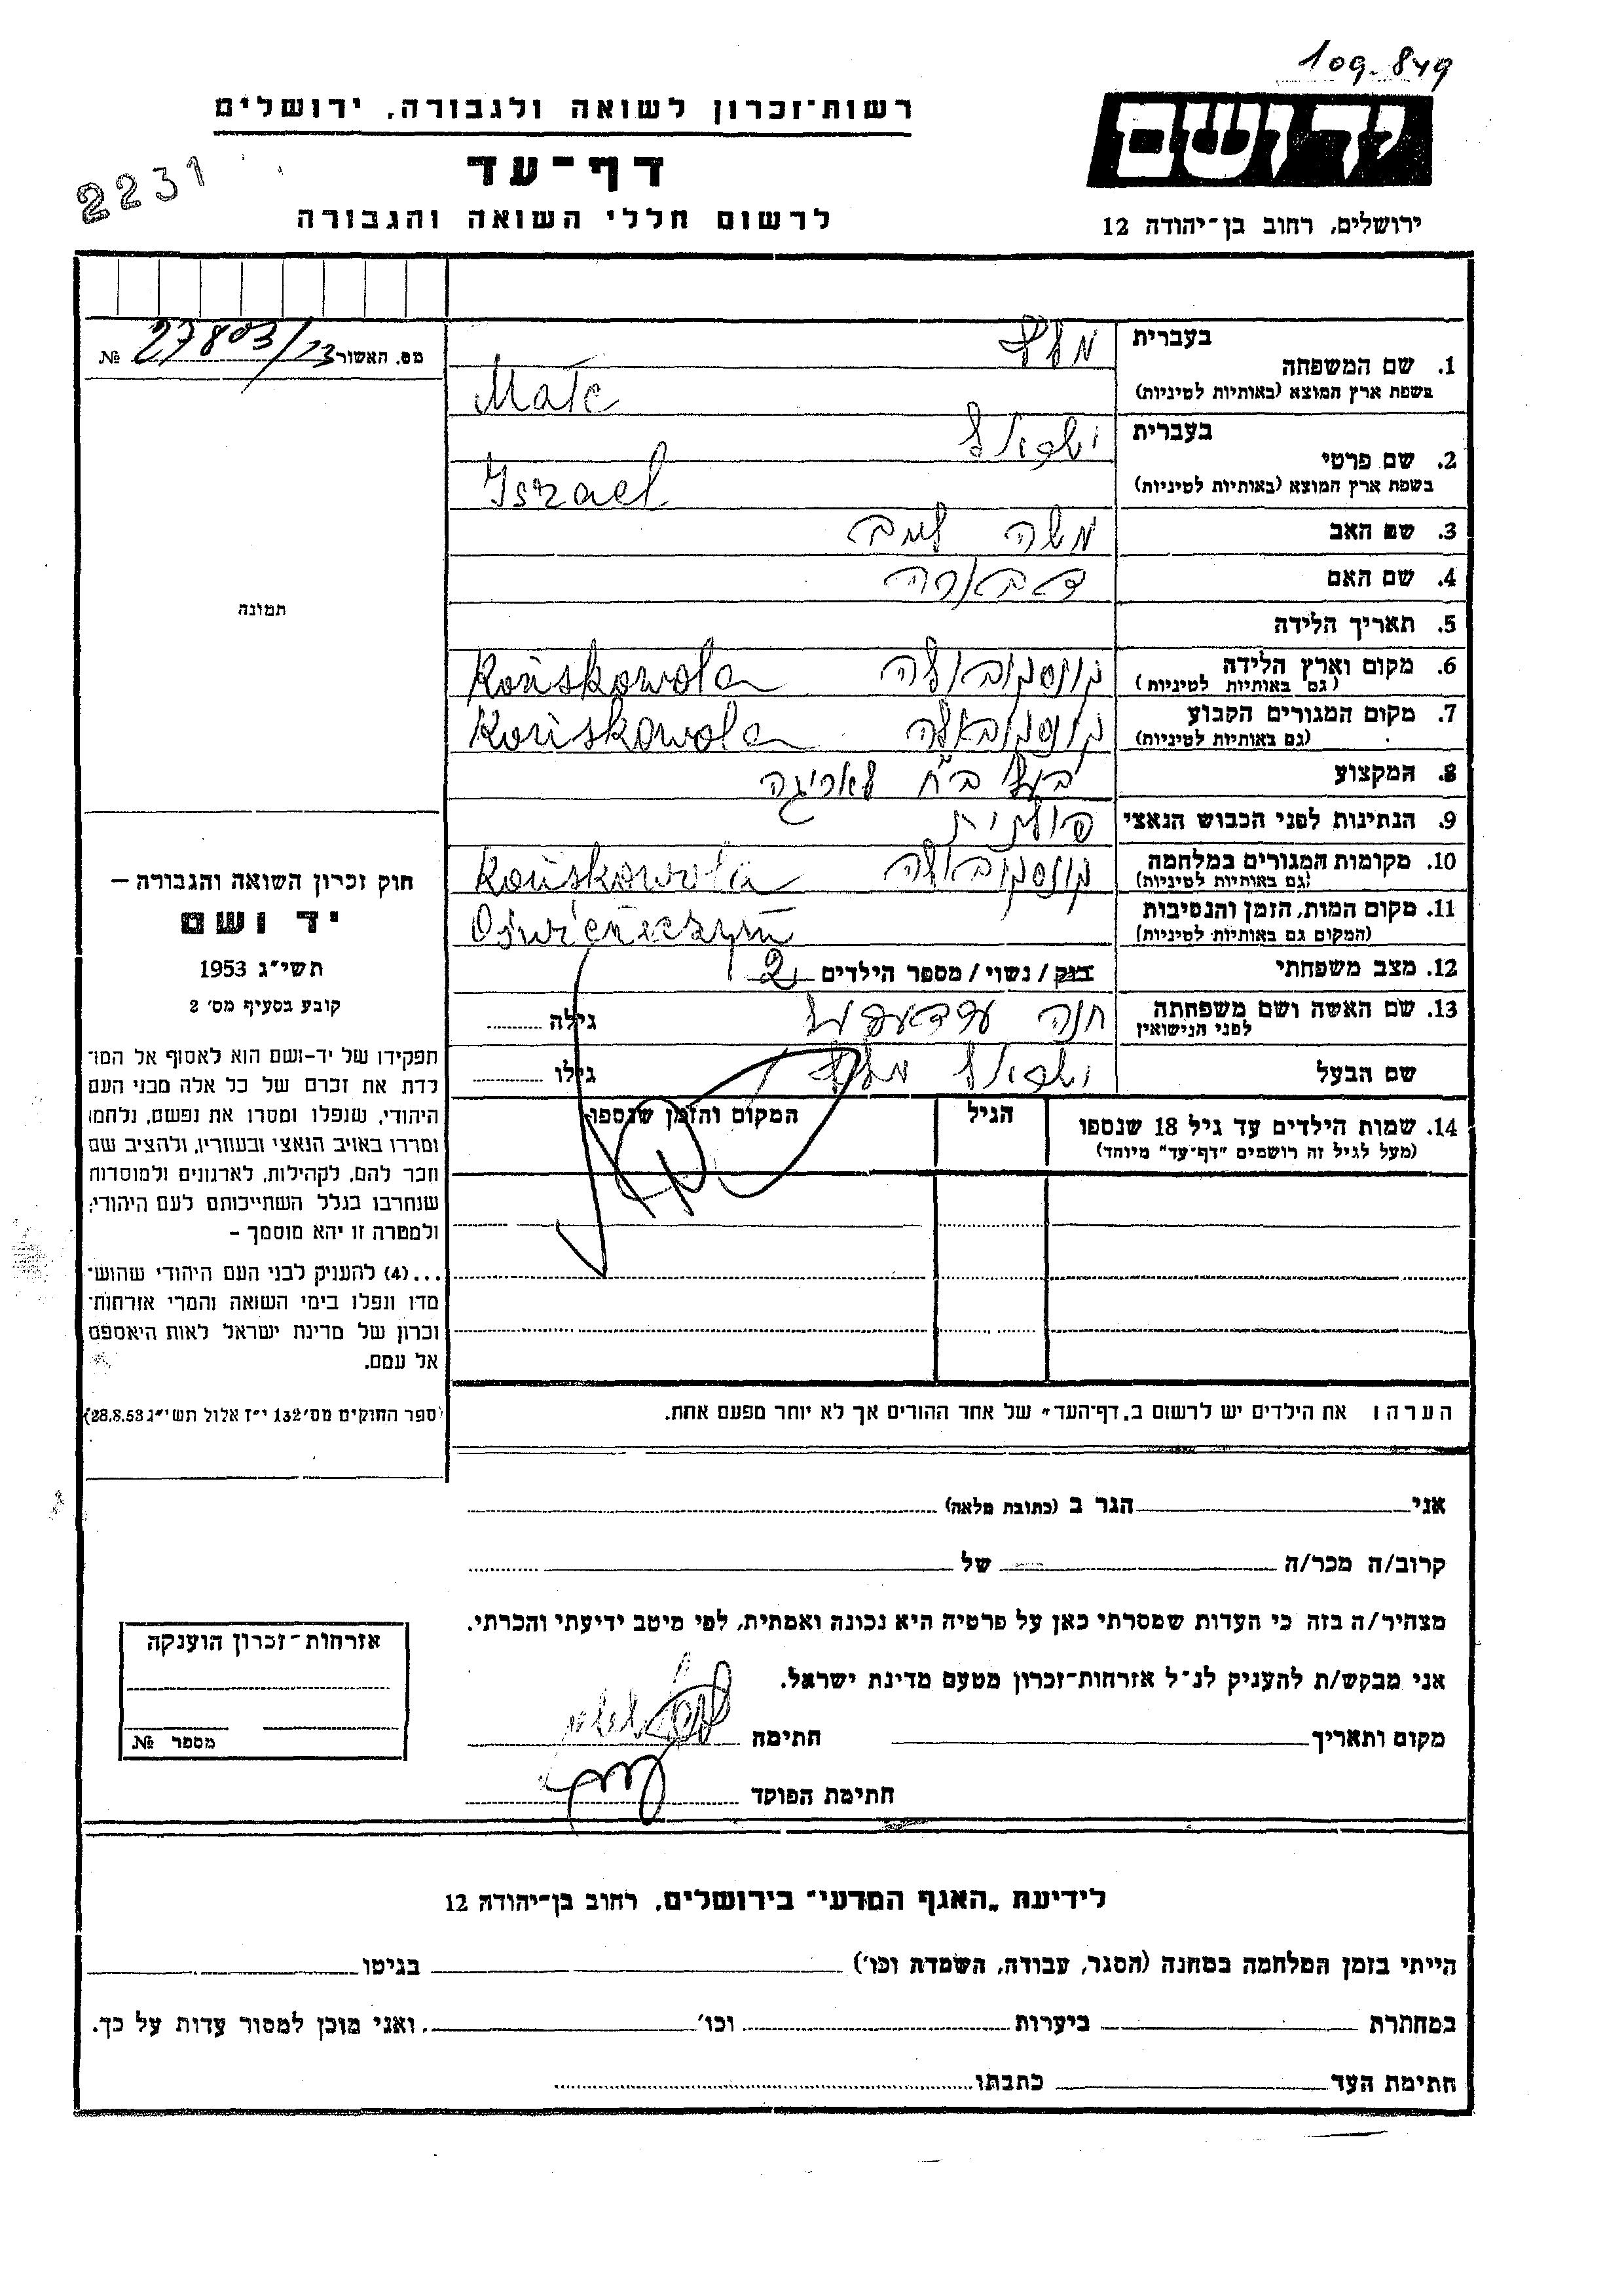 109.849
רשות־זכרון לשואה ולגבורה, ירושלים
יד ושם
2231
דף־עד
לרשום חללי השואה והגבורה
ירושלים, רחוב בן־יהודה 12
מס. האשור 27803/13 №
בעברית
1. שם המשפחה
בשפת ארץ המוצא (באותיות לטיניות)
בעברית ישראל
2. שם פרטי
בשפת ארץ המוצא (באותיות לטיניות) Iszael
3. שם האב משה
4. שם האם דבורה
5. תאריך הלידה
6. מקום וארץ הלידה קונסקובולה Końskowola
(גם באותיות לטיניות)
7. מקום המגורים הקבוע קונסקובאלה Końskowola
(גם באותיות לטיניות)
8. המקצוע בעל בי״ח לאריגה
9. הנתינות לפני הכבוש הנאצי פולנית
10. מקומות המגורים במלחמה קונסקובולה Końskowola
(גם באותיות לטיניות)
11. מקום המות, הזמן והנסיבות
(המקום גם באותיות לטיניות)
12. מצב משפחתי רווק / נשוי / מספר הילדים 2
13. שם האשה ושם משפחתה חנה גילה
לפני הנישואין
שם הבעל ישראל גילו
14. שמות הילדים עד גיל 18 שנספו הגיל המקום והזמן שנספו
(מעל לגיל זה רושמים "דף־עד" מיוחד)
הערה: את הילדים יש לרשום ב„דף־העד״ של אחד ההורים אך לא יותר מפעם אחת.
תמונה
חוק זכרון השואה והגבורה –
יד ושם
תשי״ג 1953
קובע בסעיף מס׳ 2
תפקידו של יד-ושם הוא לאסוף אל המו־
לדת את זכרם של כל אלה מבני העם
היהודי, שנפלו ומסרו את נפשם, נלחמו
ומרדו באויב הנאצי ובעוזריו, ולהציב שם
וזכר להם, לקהילות, לארגונים ולמוסדות
שנחרבו בגלל השתייכותם לעם היהודי;
ולמטרה זו יהא מוסמך –
...(4) להעניק לבני העם היהודי שהוש־
מדו ונפלו בימי השואה והמרי אזרחות־
זכרון של מדינת ישראל לאות היאספם
אל עמם.
(ספר החוקים מס׳ 132 י״ז אלול תשי״ג 28.8.53)
אני הגר ב (כתובת מלאה)
קרוב/ה מכר/ה של
מצהיר/ה בזה כי העדות שמסרתי כאן על פרטיה היא נכונה ואמתית, לפי מיטב ידיעתי והכרתי.
אני מבקש/ת להעניק לנ״ל אזרחות־זכרון מטעם מדינת ישראל.
מקום ותאריך חתימה
חתימת הפוקד
אזרחות־זכרון הוענקה
מספר №
לידיעת „האגף המדעי״ בירושלים, רחוב בן־יהודה 12
הייתי בזמן המלחמה במחנה (הסגר, עבודה, השמדה וכו׳) בגיטו
במחתרת ביערות וכו׳ ואני מוכן למסור עדות על כך.
חתימת העד כתבתו